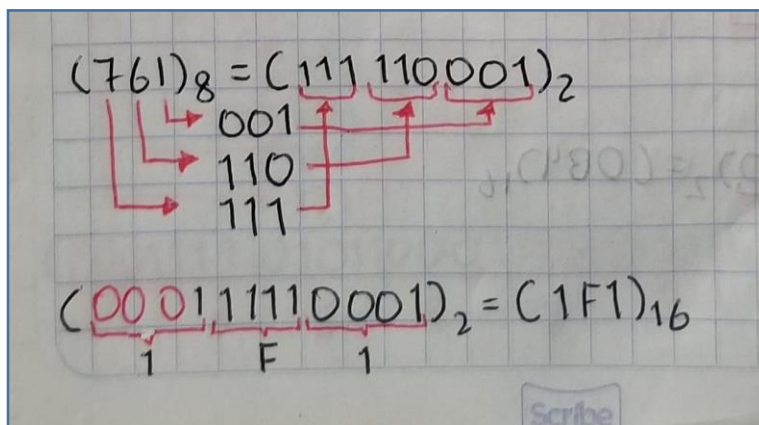 (761)8 = (111 110 001)2
001
110
111
(0001 1111 0001)2 = (1F1)16
1 F 1
Scribe